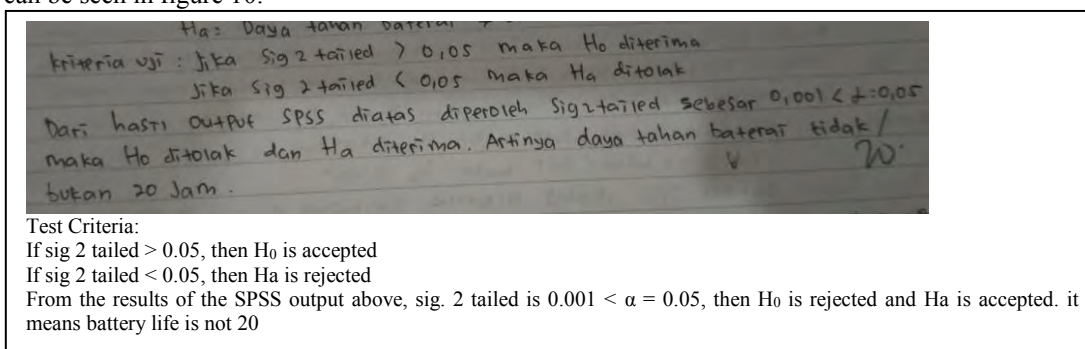 can be seen in figure 10.
Ha: Daya tahan baterai
kriteria uji : Jika Sig 2 tailed > 0,05 maka Ho diterima
Jika Sig 2 tailed < 0,05 maka Ha ditolak
Dari hasil output SPSS diatas diperoleh Sig 2 tailed sebesar 0,001 < α = 0,05
maka Ho ditolak dan Ha diterima. Artinya daya tahan baterai tidak /
bukan 20 Jam.
20
Test Criteria:
If sig 2 tailed > 0.05, then H₀ is accepted
If sig 2 tailed < 0.05, then Ha is rejected
From the results of the SPSS output above, sig. 2 tailed is 0.001 < α = 0.05, then H₀ is rejected and Ha is accepted. it
means battery life is not 20